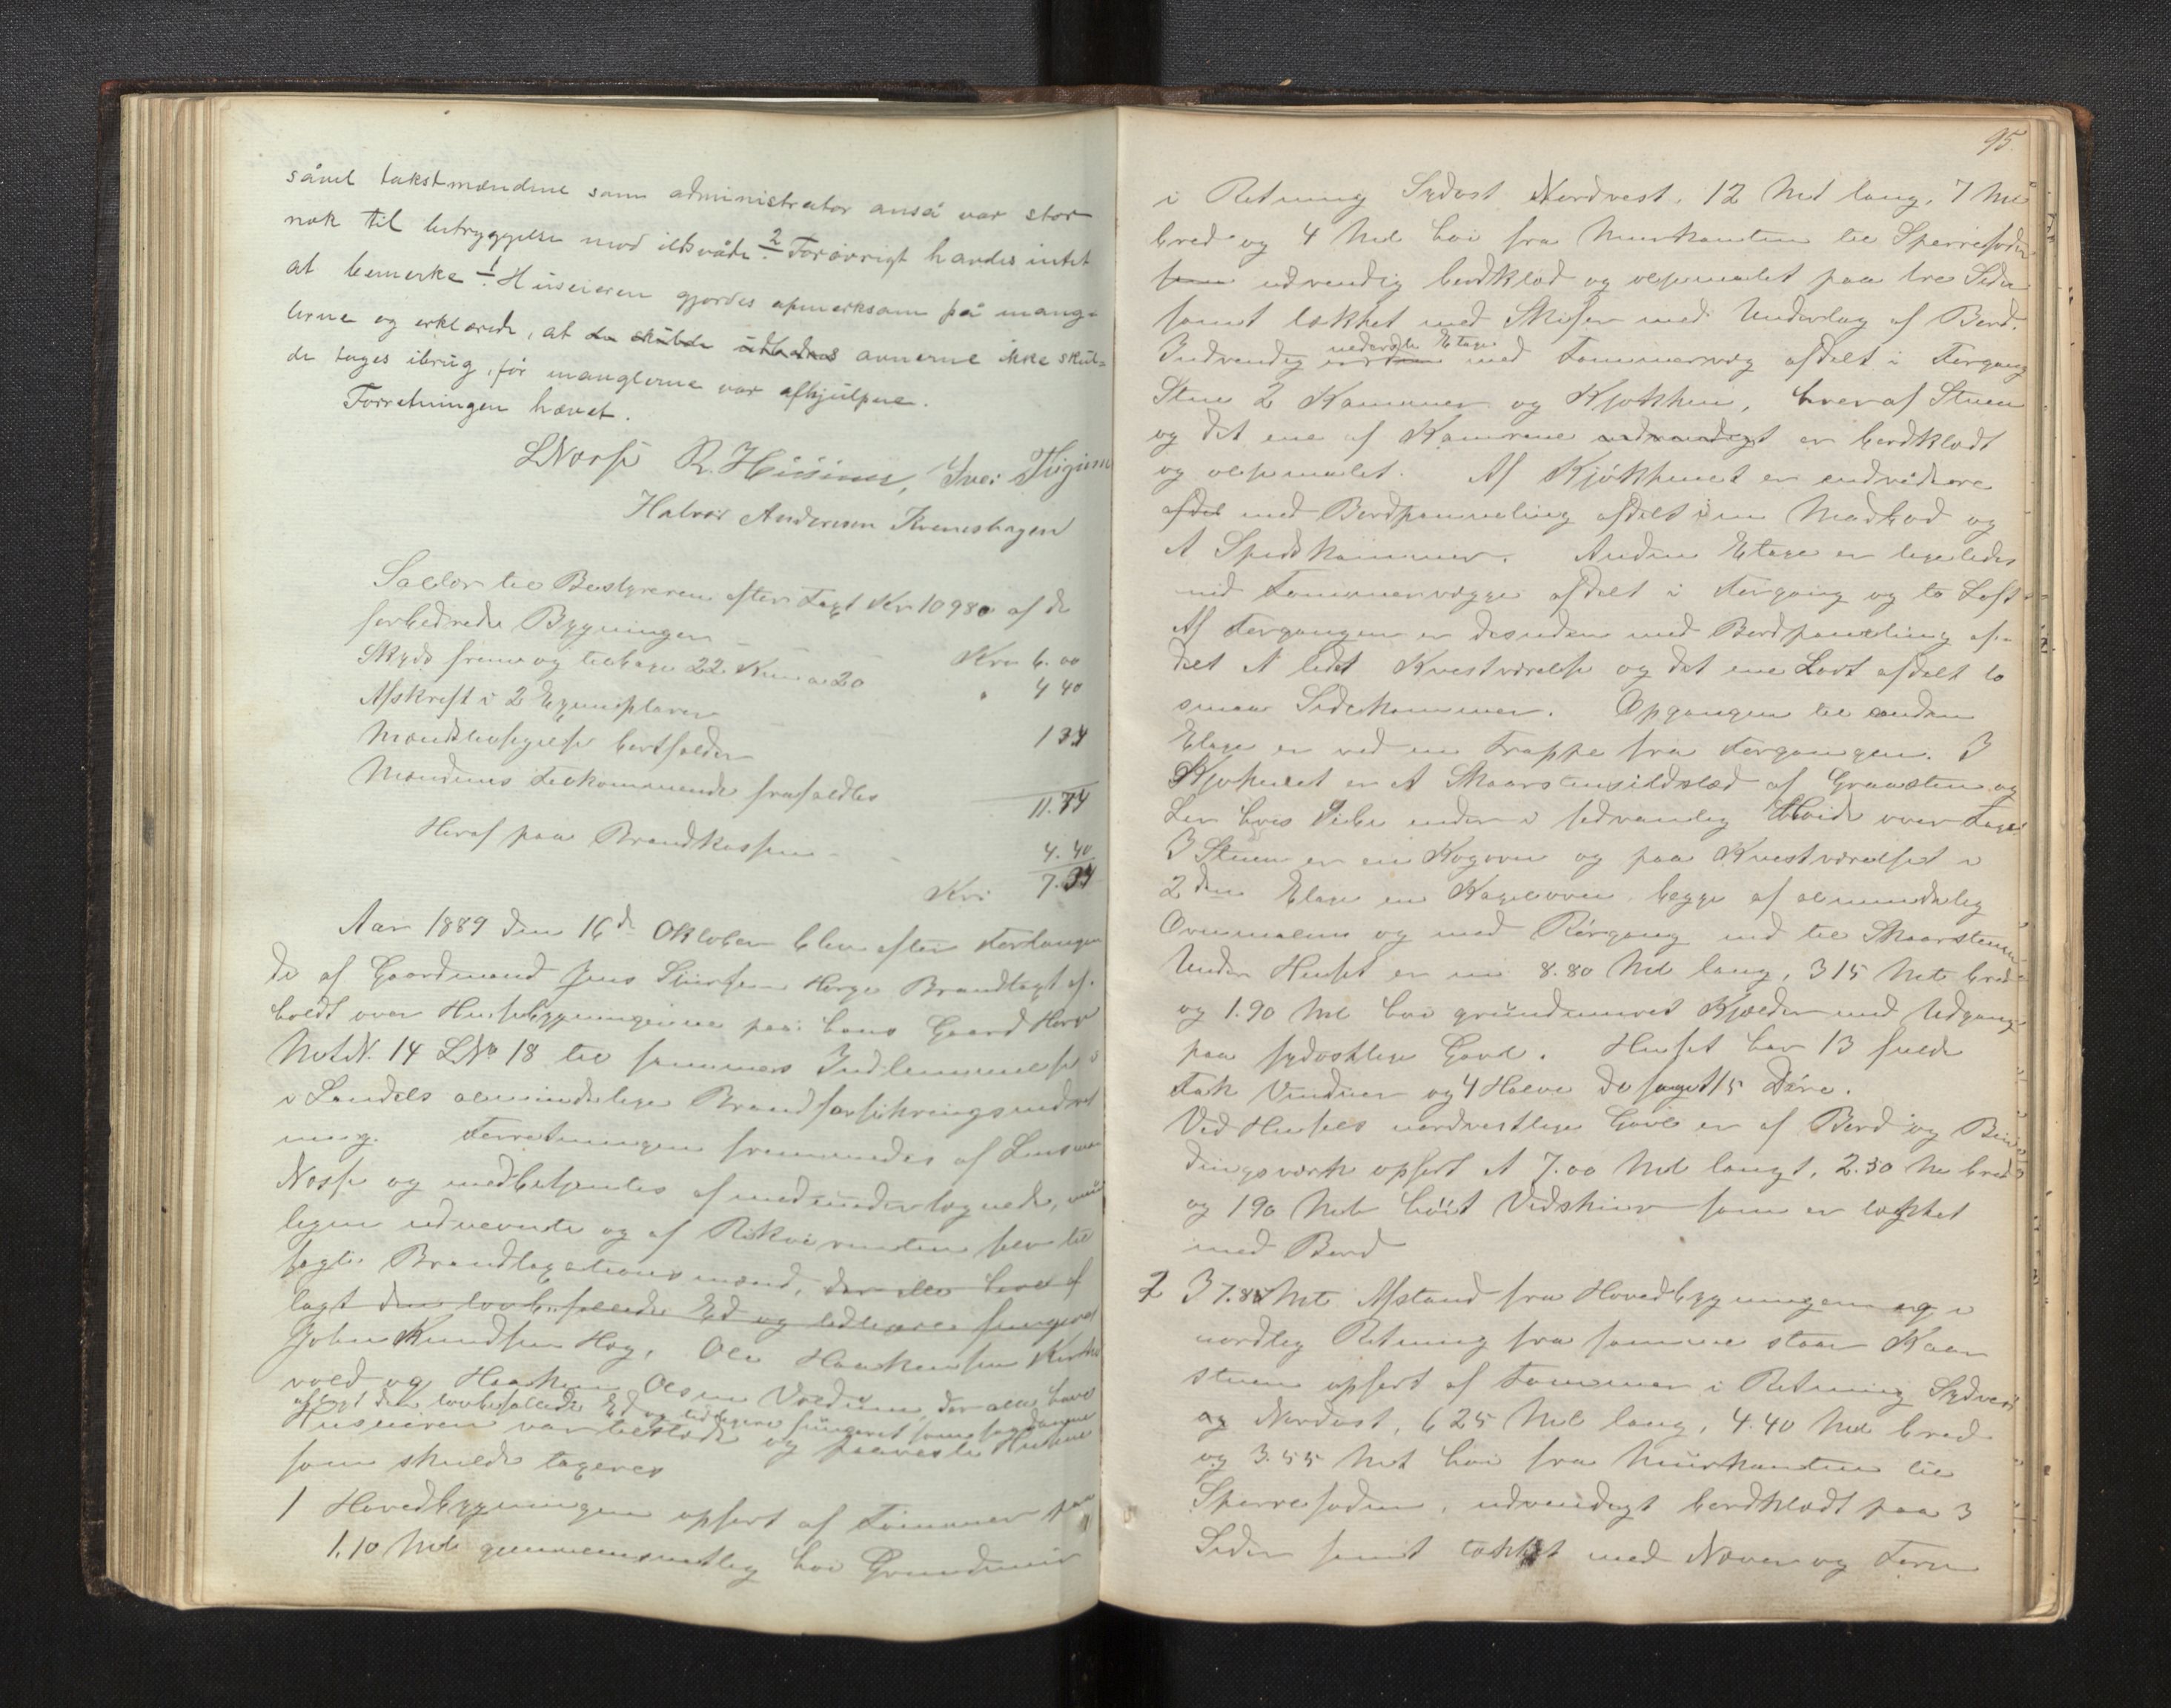 såvel takstmændene som administrator anså var stor
nok til betryggelse mod ildsvåde 2/. Forøvrigt havdes intet
at bemerke 1/. Huseieren gjordes opmerksom på mang-
lerne og erklærede, at de skulde udbedres ovnerne ikke skul-
de tages ibrug, før manglerne var afhjulpne.
Forretningen hævet.
LNosse R. Iver
Halvor Andersen
Salær til Bestyreren efter Taxt Kr 10980 af de
forbedrede Bygninger Kro 6.00
Skyds frem og tilbage 22 Km a 20 " 4 40
Afskrift i 2 Exemplarer 1 34
Mændstilsigelse bortfalder
Mændenes Tilkommende frafaldtes 11.74
Heraf paa Brandkassen 4.40
Kr: 7.34
Aar 1889 den 16de Oktober blev efter Forlangen
de af Gaardmand Jens Horge Brandtaxt af-
holdt over Husebygningerne paa hans Gaard Horge
MatN. 14 LNo 18 til sammes Indlemmelse
i Landets almindelige Brandforsikringsindret
ning. Forretningen fremmedes af Lensman
Nosse og medbetjentes af medundertegnede,
ligen udnævnte og af Rekvirenten selv til
sagte Brandtaxationsmænd, der alle have af
lagt den lovbefalede Ed og tidligere fungeret
John Knudsen Hog, Ole Haakensen
vold og Haaken Olsen Voldum, der alle have
aflagt den lovbefalede Ed og tidligere fungeret som saadanne
Huseieren var tilstede og paaviste Husene
som skulde taxeres
1 Hovedbygningen opført af Tømmer paa
1.10 Met gjennemsnitlig høi Grundmur
95
i Retning Sydost Nordvest, 12 Met lang, 7 Met
bred og 4 Met høi fra Murkanten til Sperrefoden
udvendig bordklæd og oljemalet paa tre Sider
samt tækket med Skifer med Underlag af Bord.
nederste Etage
Indvendig med Tømmervæg afdelt i Forgang
Stue 2 Kammer og Kjøkken, hveraf Stuen
og det ene af Kamrene indvendigt er bordklædt
og oljemalet. Af Kjøkkenet er endvidere
afdel med Bordpanneling afdelt en Madbod og
et Spiskammer. Anden Etage er ligeledes
med Tømmervægge afdelt i Forgang og to Loft
Af Forgangen er desuden med Bordpaneling af-
delt et lidet Kvistværelse og det ene Lovt afdelt to
smaa Sidekammer. Opgangen til anden
Etage er ved en Trappe fra Forgangen. I
Kjøkenet er et Skaarstensildsted af Graasten og
Ler hvis Pibe ender i sedvanlig Høide over Taget
I Stuen er en Kogovn og paa Kvistværelset i
2den Etage en Kagelovn begge af almindelig
Ovnmalm og med Rørgang ind til Skaarstenen
Under Huset er en 8.80 Met lang, 3 15 Met bred
og 1.90 Met høi grundmuret Kjelder med Udgang
paa sydostlige Gavl. Huset har 13 fulde
Fak Vinduer og 4 Halve do samt 15 Døre.
Ved Husets nordvestlige Gavl er af Bord og Bin
dingsværk opført et 7.00 Met langt, 2.50 Me bred
og 1 90 Met høit Vedskur som er tækket
med Bord
2 I 7.80 Met Afstand fra Hovedbygningen og i
nordlig Retning fra samme staar Kaar
stuen opført af Tømmer i Retning Sydvest
og Nordost, 6 25 Met lang, 4.40 Met bred
og 3.55 Met høi fra Murkanten til
Sperrefoden, udvendigt bordklædt paa 3
Sider samt tækket med Næver og Torv